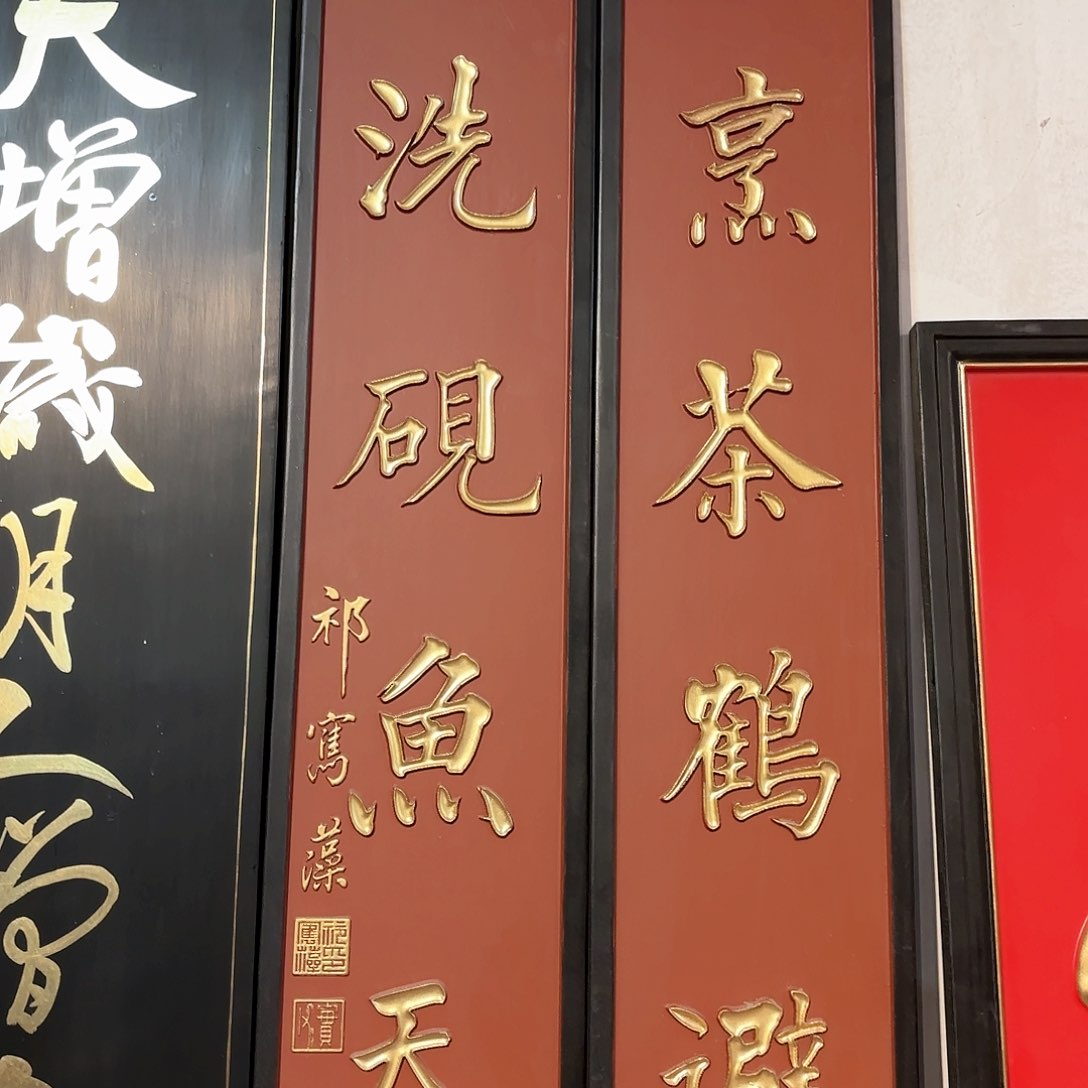 烹茶鶴避
洗硯魚天
祁寯藻
天增歲月人增